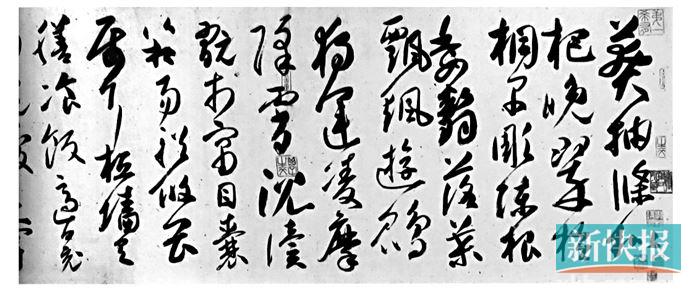 莽抽條枇
杷晚翠梧
桐早彫陳根
委翳落葉
飄颻遊鵾
獨運凌摩
絳霄耽讀
翫市寓目囊
箱易輶攸畏
屬耳垣墻具
膳飡飯適口充
新快报